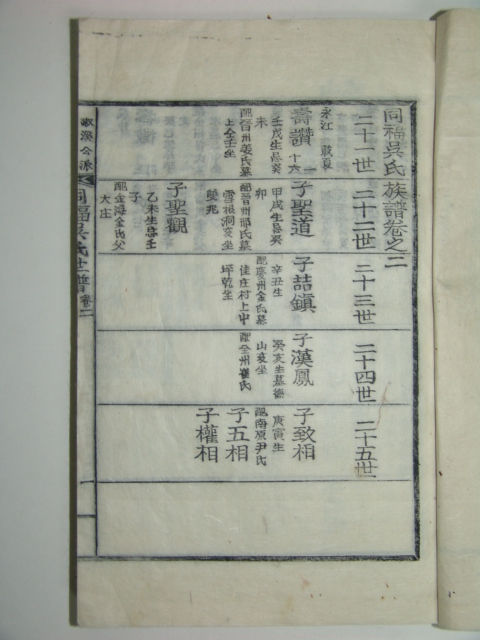 同福吳氏族譜卷之二
二十一世
二十二世
二十三世
二十四世
二十五世
壽讚
十六
壬戌生忌癸
未
配晉州姜氏墓
上仝壬坐
子聖道
甲戌生忌癸
卯
配晉州邢氏墓
雪根洞亥坐
雙兆
子聖觀
乙未生忌壬
子
配金海金氏父
大庄
子喆鎭
辛丑生
配慶州金氏墓
佳庄村上中
坪乾坐
子漢鳳
癸亥生墓德
山亥坐
配全州崔氏
子致相
庚寅生
配南原尹氏
子五相
子權相
同福吳氏世譜
卷二